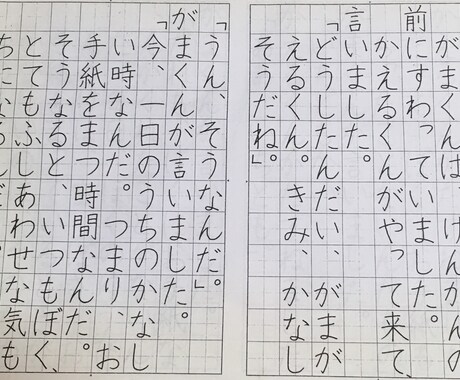 がまくんは、げんかんの
前にすわっていました。
かえるくんがやって来て、
言いました。
「どうしたんだい、がまが
えるくん。きみ、かなし
そうだね。」
「うん、そうなんだ。」
がまくんが言いました。
「今、一日のうちのかなし
い時なんだ。つまり、お
手紙をまつ時間なんだ。
そうなると、いつもぼく、
とてもふしあわせな気も
ちになるんだ